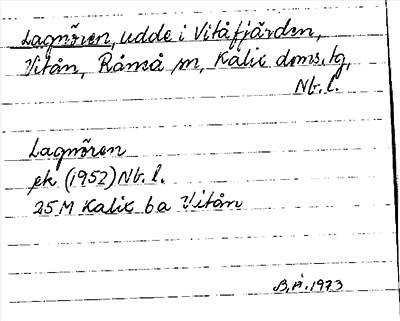 Lagnören, udde i Vitåfjärden,
Vitån, Råneå sn, Kalix doms.tg,
Nb. l.
Lagnören
ek (1952) Nb. l.
25M Kalix 6a Vitån
B.Å. 1973